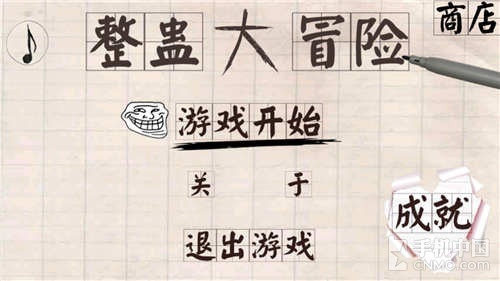 整蛊大冒险
商店
游戏开始
关于
成就
退出游戏
手机中国
CNMO.com